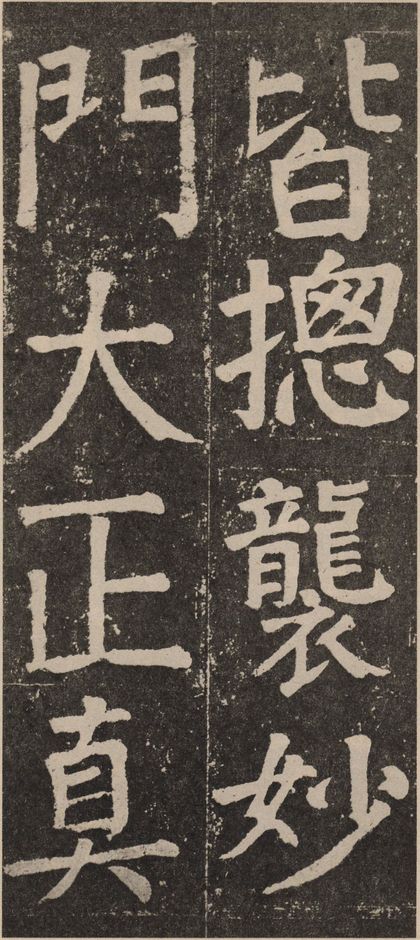 皆摠襲妙
門大正真